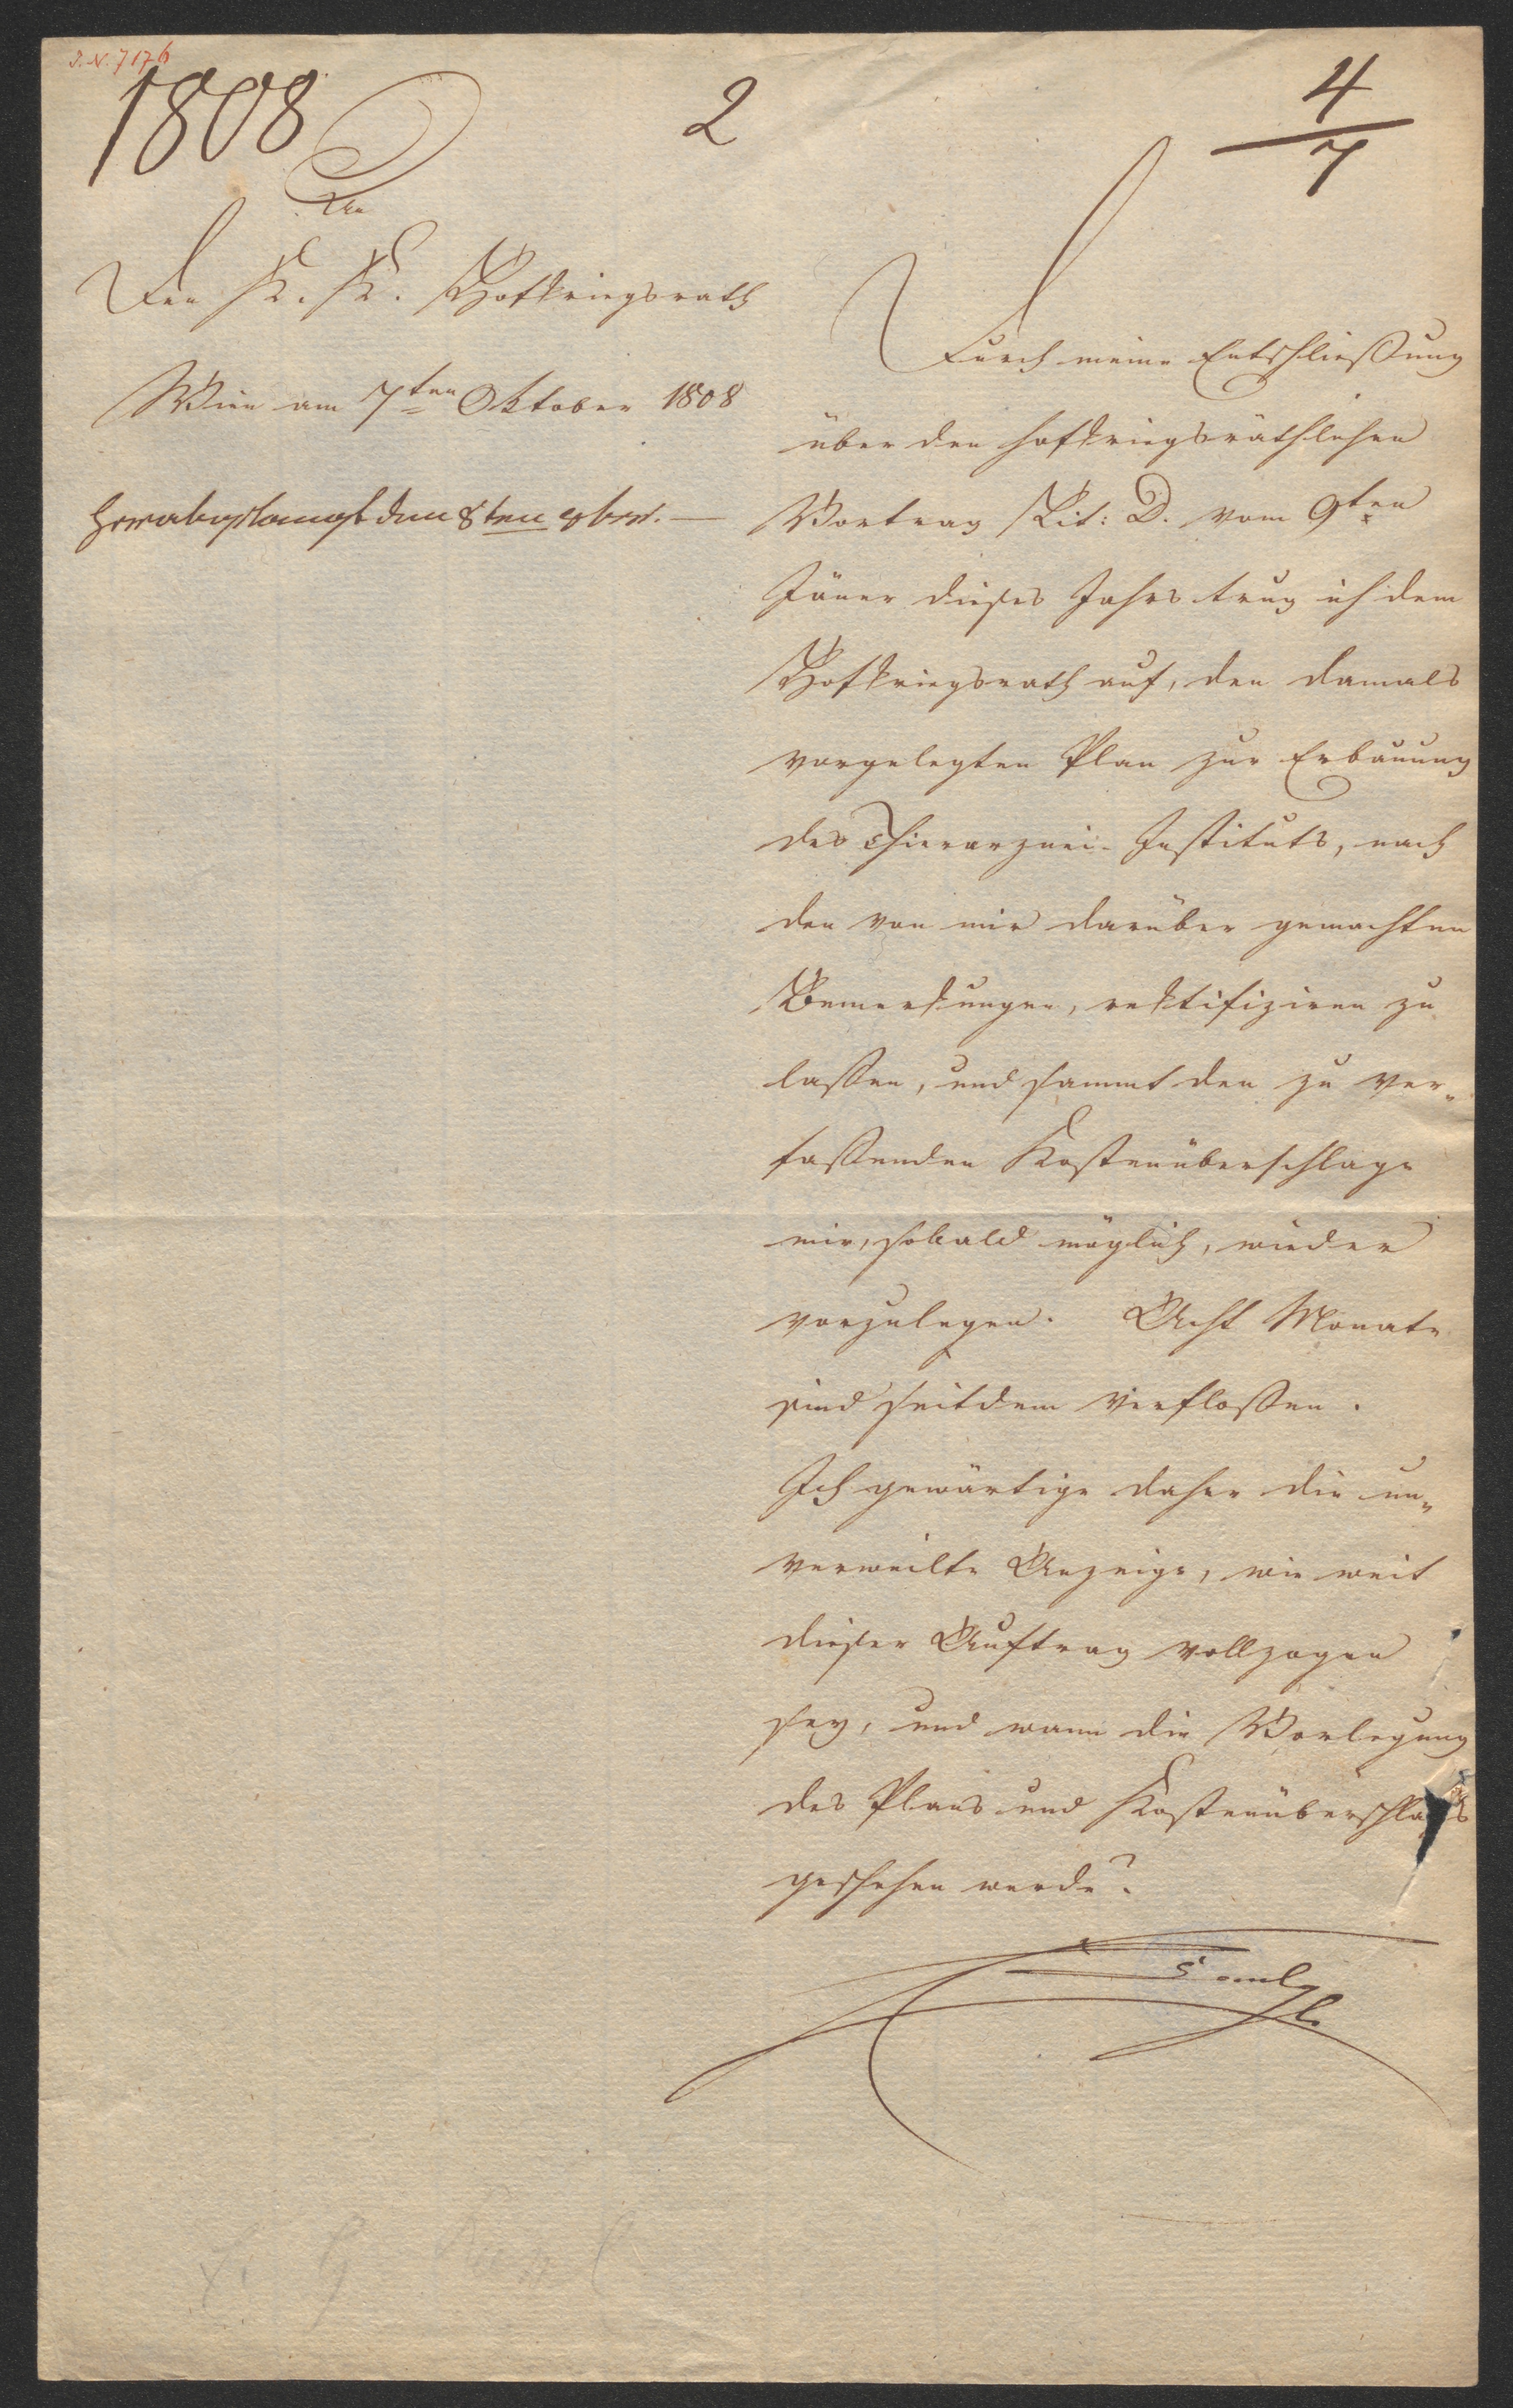 I. N. 7176
1808
2
4
7
An
Den K. K. Hofkriegsrath
Wien am 7ten Oktober 1808
herabgelangt den 8ten 8br. —
Durch meine Entschließung
über den hofkriegsräthlichen
Vortrag Lit: D. vom 9ten
Jäner dieses Jahrs trug ich dem
Hofkriegsrath auf, den damals
vorgelegten Plan zur Erbauung
des Thierarznei-Instituts, nach
den von mir darüber gemachten
Bemerkungen, rektifiziren zu
laßen, und sammt den zu ver„
faßenden Kostenüberschlage
mir, sobald möglich, wieder
vorzulegen. Acht Monate
sind seitdem verfloßen.
Ich gewärtige daher die un„
verweilte Anzeige, wie weit
dieser Auftrag vollzogen
sey, und wann die Vorlegung
des Plans und Kostenüberschlags
geschehen werde?